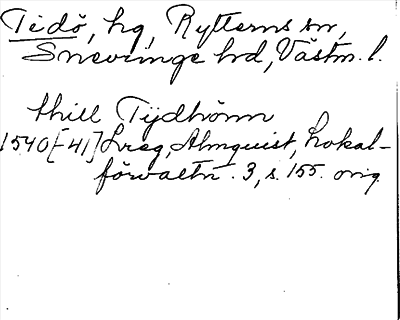 Tidö, hg, Rytterns sn,
Snevringe hd, Västm. l.
thill Tijdhönn
1540[-41] Lreg, Almquist, Lokal-
förvaltn. 3, s. 155. orig.